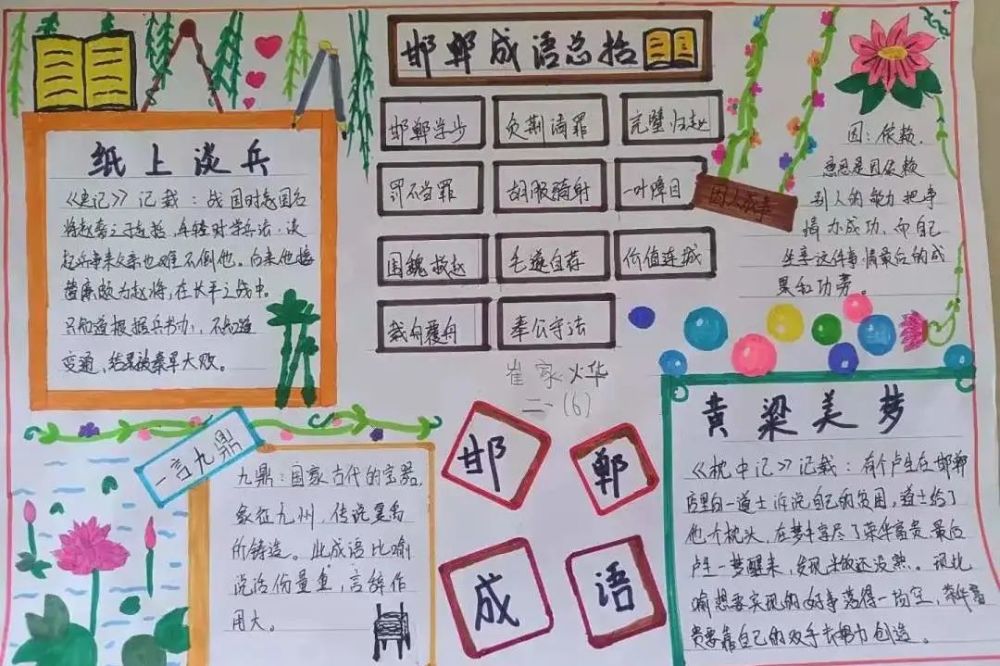 邯郸成语总结
邯郸学步
负荆请罪
完璧归赵
罚不当罪
胡服骑射
一叶障目
围魏救赵
毛遂自荐
价值连城
载舟覆舟
奉公守法
崔家烨
二、(6)
纸上谈兵
《史记》记载：战国时赵国名
将赵奢之子赵括，年轻时学兵法，谈
起兵事来父亲也难不倒他。后来他接
替廉颇为赵将，在长平之战中，
只知道根据兵书办，不知道
变通，结果被秦军大败。
因人成事
因：依赖，
意思是因依赖
别人的能力把事
情办成功，而自己
坐享这件事情最后的成
果和功劳。
一言九鼎
九鼎：国家古代的宝器，
象征九州，传说夏禹
所铸造。此成语比喻
说话份量重，言辞作
用大。
邯
郸
成
语
黄粱美梦
《枕中记》记载：有个卢生在邯郸
店里向一道士诉说自己的贫困，道士给了
他个枕头，在梦中享尽了荣华富贵，最后
卢生一梦醒来，发现米饭还没熟。
喻想要实现的好事落得一场空，荣华富
贵要靠自己的双手去努力创造。